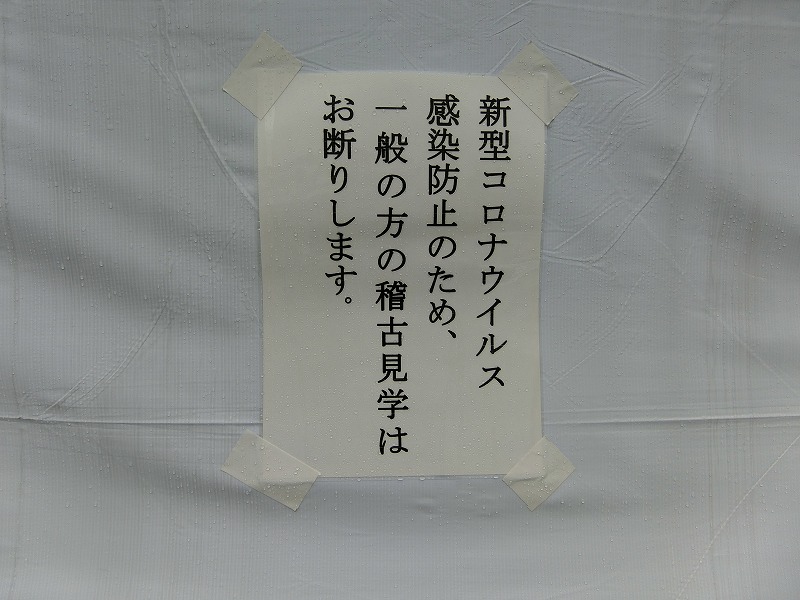 新型コロナウイルス
感染防止のため、
一般の方の稽古見学は
お断りします。